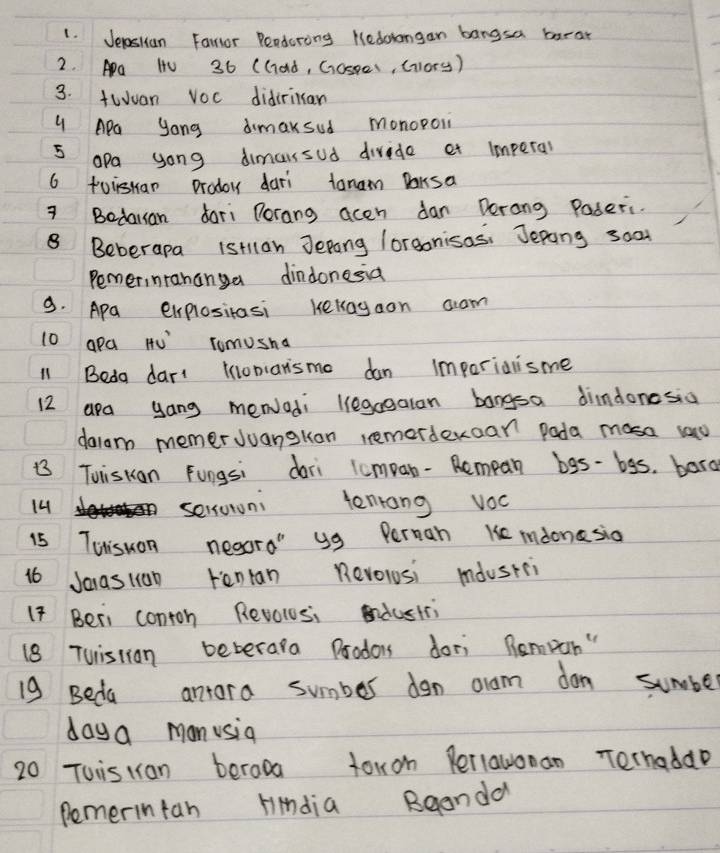 1. Jelaskan Faktor Pendorong Kedatangan bangsa barat
2. Apa itu 3G (Gold, Gospel, Glory)
3. tujuan VOC didirikan
4 Apa yang dimaksud monopoli
5 apa yang dimaksud divide et imperal
6 tuliskan Produk dari tanam Paksa
7 Bedakan dari Perang aceh dan Perang Paderi.
8 Beberapa istilah Jepang/organisasi Jepang saat
Pemerintahanya diindonesia
9. Apa eksploitasi kekayaan alam
10 apa itu romusha
11 Beda dari klonialisme dan imperialisme
12 apa yang menjadi kegagalan bangsa diindonesia
dalam memerjuangkan kemerdekaan pada masa lalu
13 Tuliskan Fungsi dari rempah-Rempah bgs-bgs. bara
14 seksluni tentang VOC
15 Tuliskan negara" yg Pernah ke indonesia
16 Jelaskan tentan Revolusi industri
17 Beri contoh Revolusi industri
18 Tuliskan beberapa Produk dari Rempah"
19 Beda antara sumber dan alam dan sumber
daya manusia
20 Tuliskan berapa tokoh Perlawanan Terhadap
Pemerintah Hindia Beanda